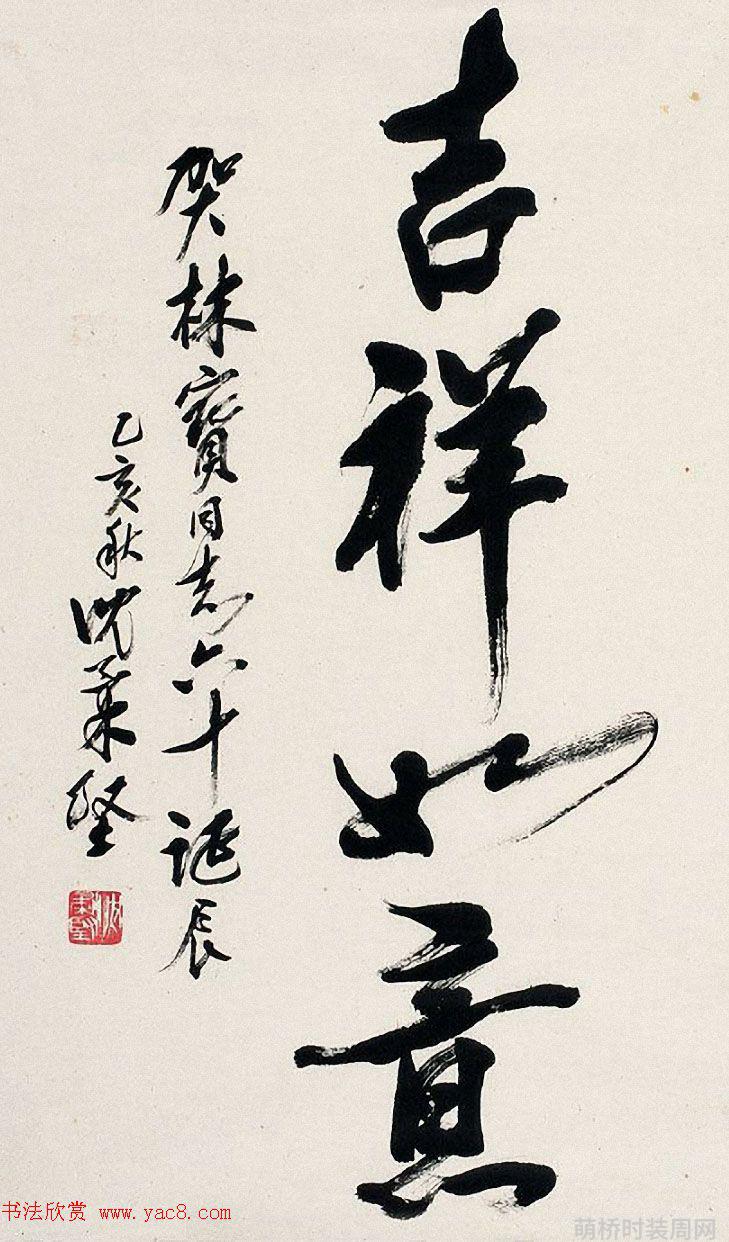 吉祥如意
贺林寶同志六十誕辰
乙亥秋沈秉堅
书法欣赏 www.yac8.com
萌桥时装周网